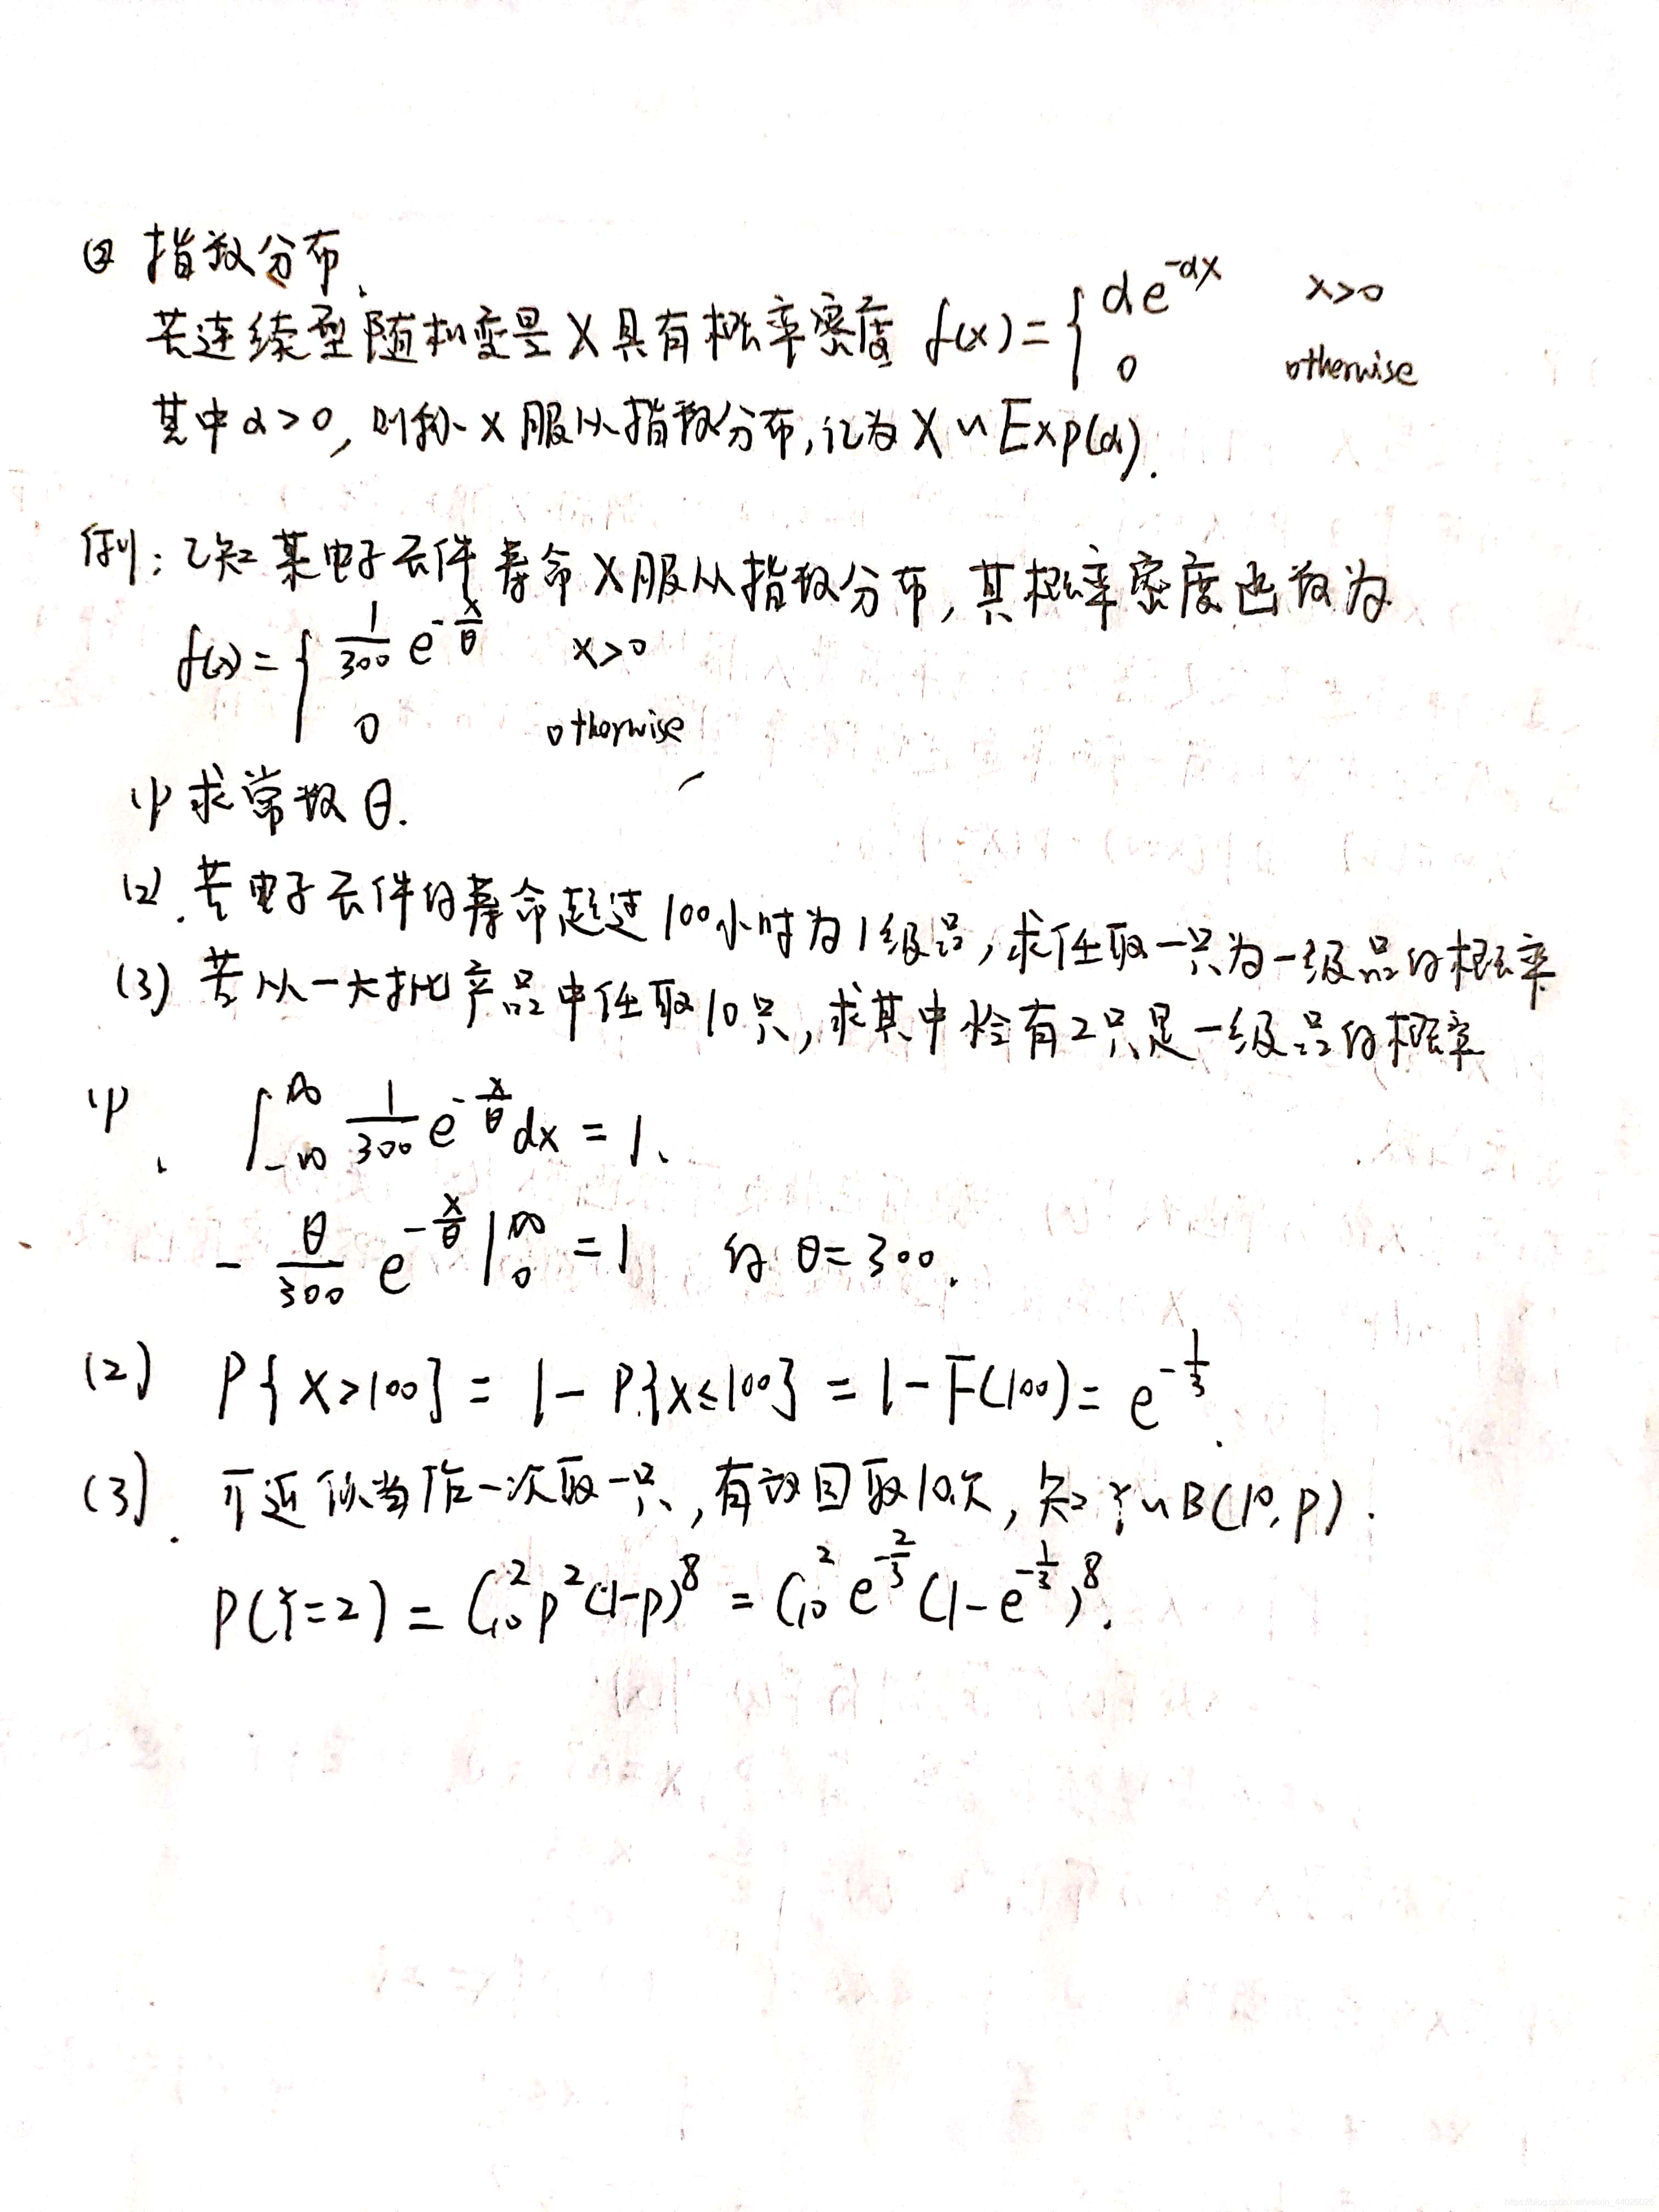 ② 指数分布、
若连续型随机变量X具有概率密度 f(x) = { αe^{-αx} x>0
0 otherwise
其中α>0, 则称X服从指数分布, 记为X~Exp(α).
例: 已知某电子元件寿命X服从指数分布, 其概率密度函数为
f(x) = { \frac{1}{300} e^{-\frac{x}{θ}} x>0
0 otherwise
(1) 求常数θ.
(2). 若电子元件的寿命超过100小时为1级品, 求任取一只为一级品的概率
(3) 若从一大批产品中任取10只, 求其中恰有2只是一级品的概率
(1). ∫_{-∞}^{∞} \frac{1}{300} e^{-\frac{x}{θ}} dx = 1、
-\frac{θ}{300} e^{-\frac{x}{θ}} |_0^∞ = 1 得 θ=300.
(2) P{X>100} = 1-P{X≤100} = 1-F(100) = e^{-\frac{1}{3}}.
(3). 可近似当作一次取一只, 有放回取10次, 知Y~B(10, P).
P(Y=2) = C_{10}^2 p^2 (1-p)^8 = C_{10}^2 e^{-\frac{2}{3}} (1-e^{-\frac{1}{3}})^8.